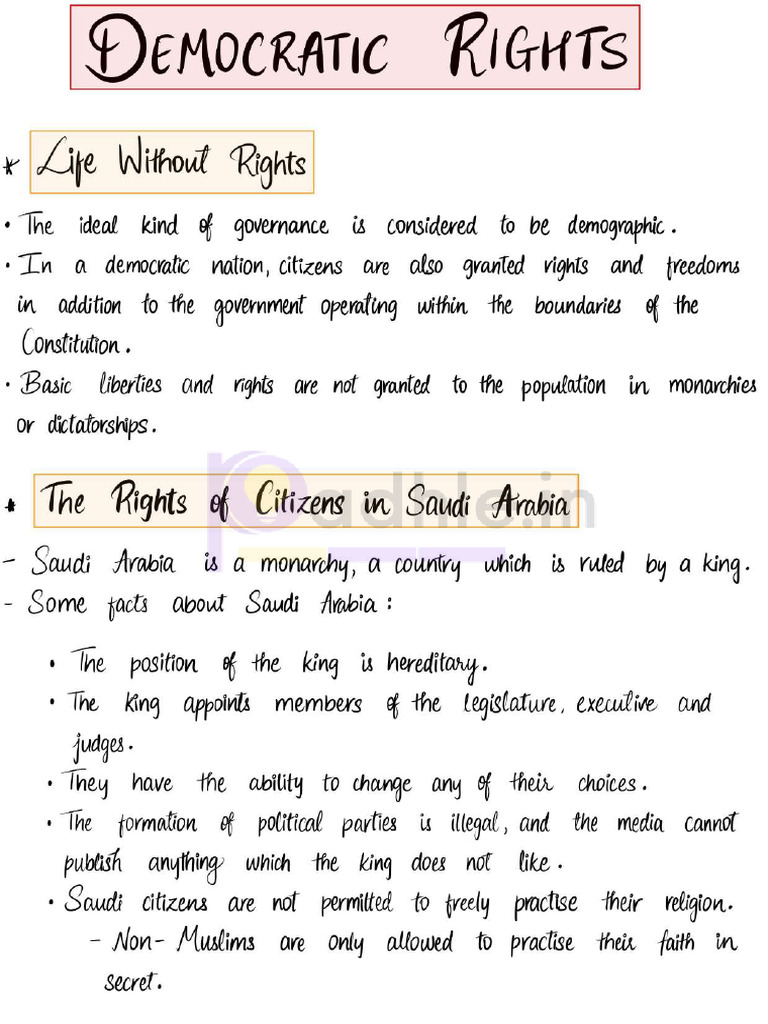 DEMOCRATIC RIGHTS
* Life Without Rights
• The ideal kind of governance is considered to be demographic.
• In a democratic nation, citizens are also granted rights and freedoms
in addition to the government operating within the boundaries of the
Constitution.
• Basic liberties and rights are not granted to the population in monarchies
or dictatorships.
padhle.in
* The Rights of Citizens in Saudi Arabia
- Saudi Arabia is a monarchy, a country which is ruled by a king.
- Some facts about Saudi Arabia:
• The position of the king is hereditary.
• The king appoints members of the legislature, executive and
judges.
• They have the ability to change any of their choices.
• The formation of political parties is illegal, and the media cannot
publish anything which the king does not like.
• Saudi citizens are not permitted to freely practise their religion.
- Non-Muslims are only allowed to practise their faith in
secret.